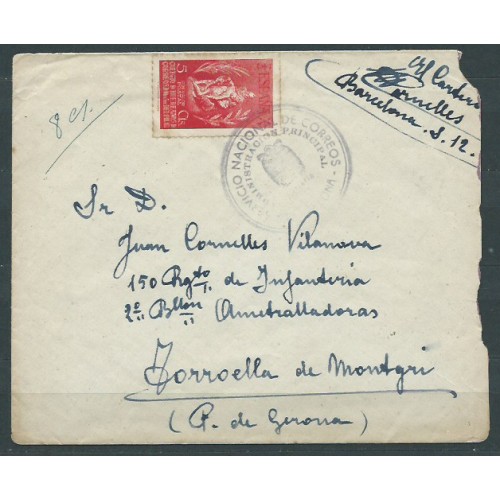 8 cs.
5 Cts
Cornelles
Barcelona. S. 12.
SERVICIO NACIONAL DE CORREOS
ADMINISTRACION PRINCIPAL
Sr D.
Juan Cornelles Vilanova
150 Rgto de Infanteria
2º Bllon Ametralladoras
Torroella de Montgri
(P. de Gerona)